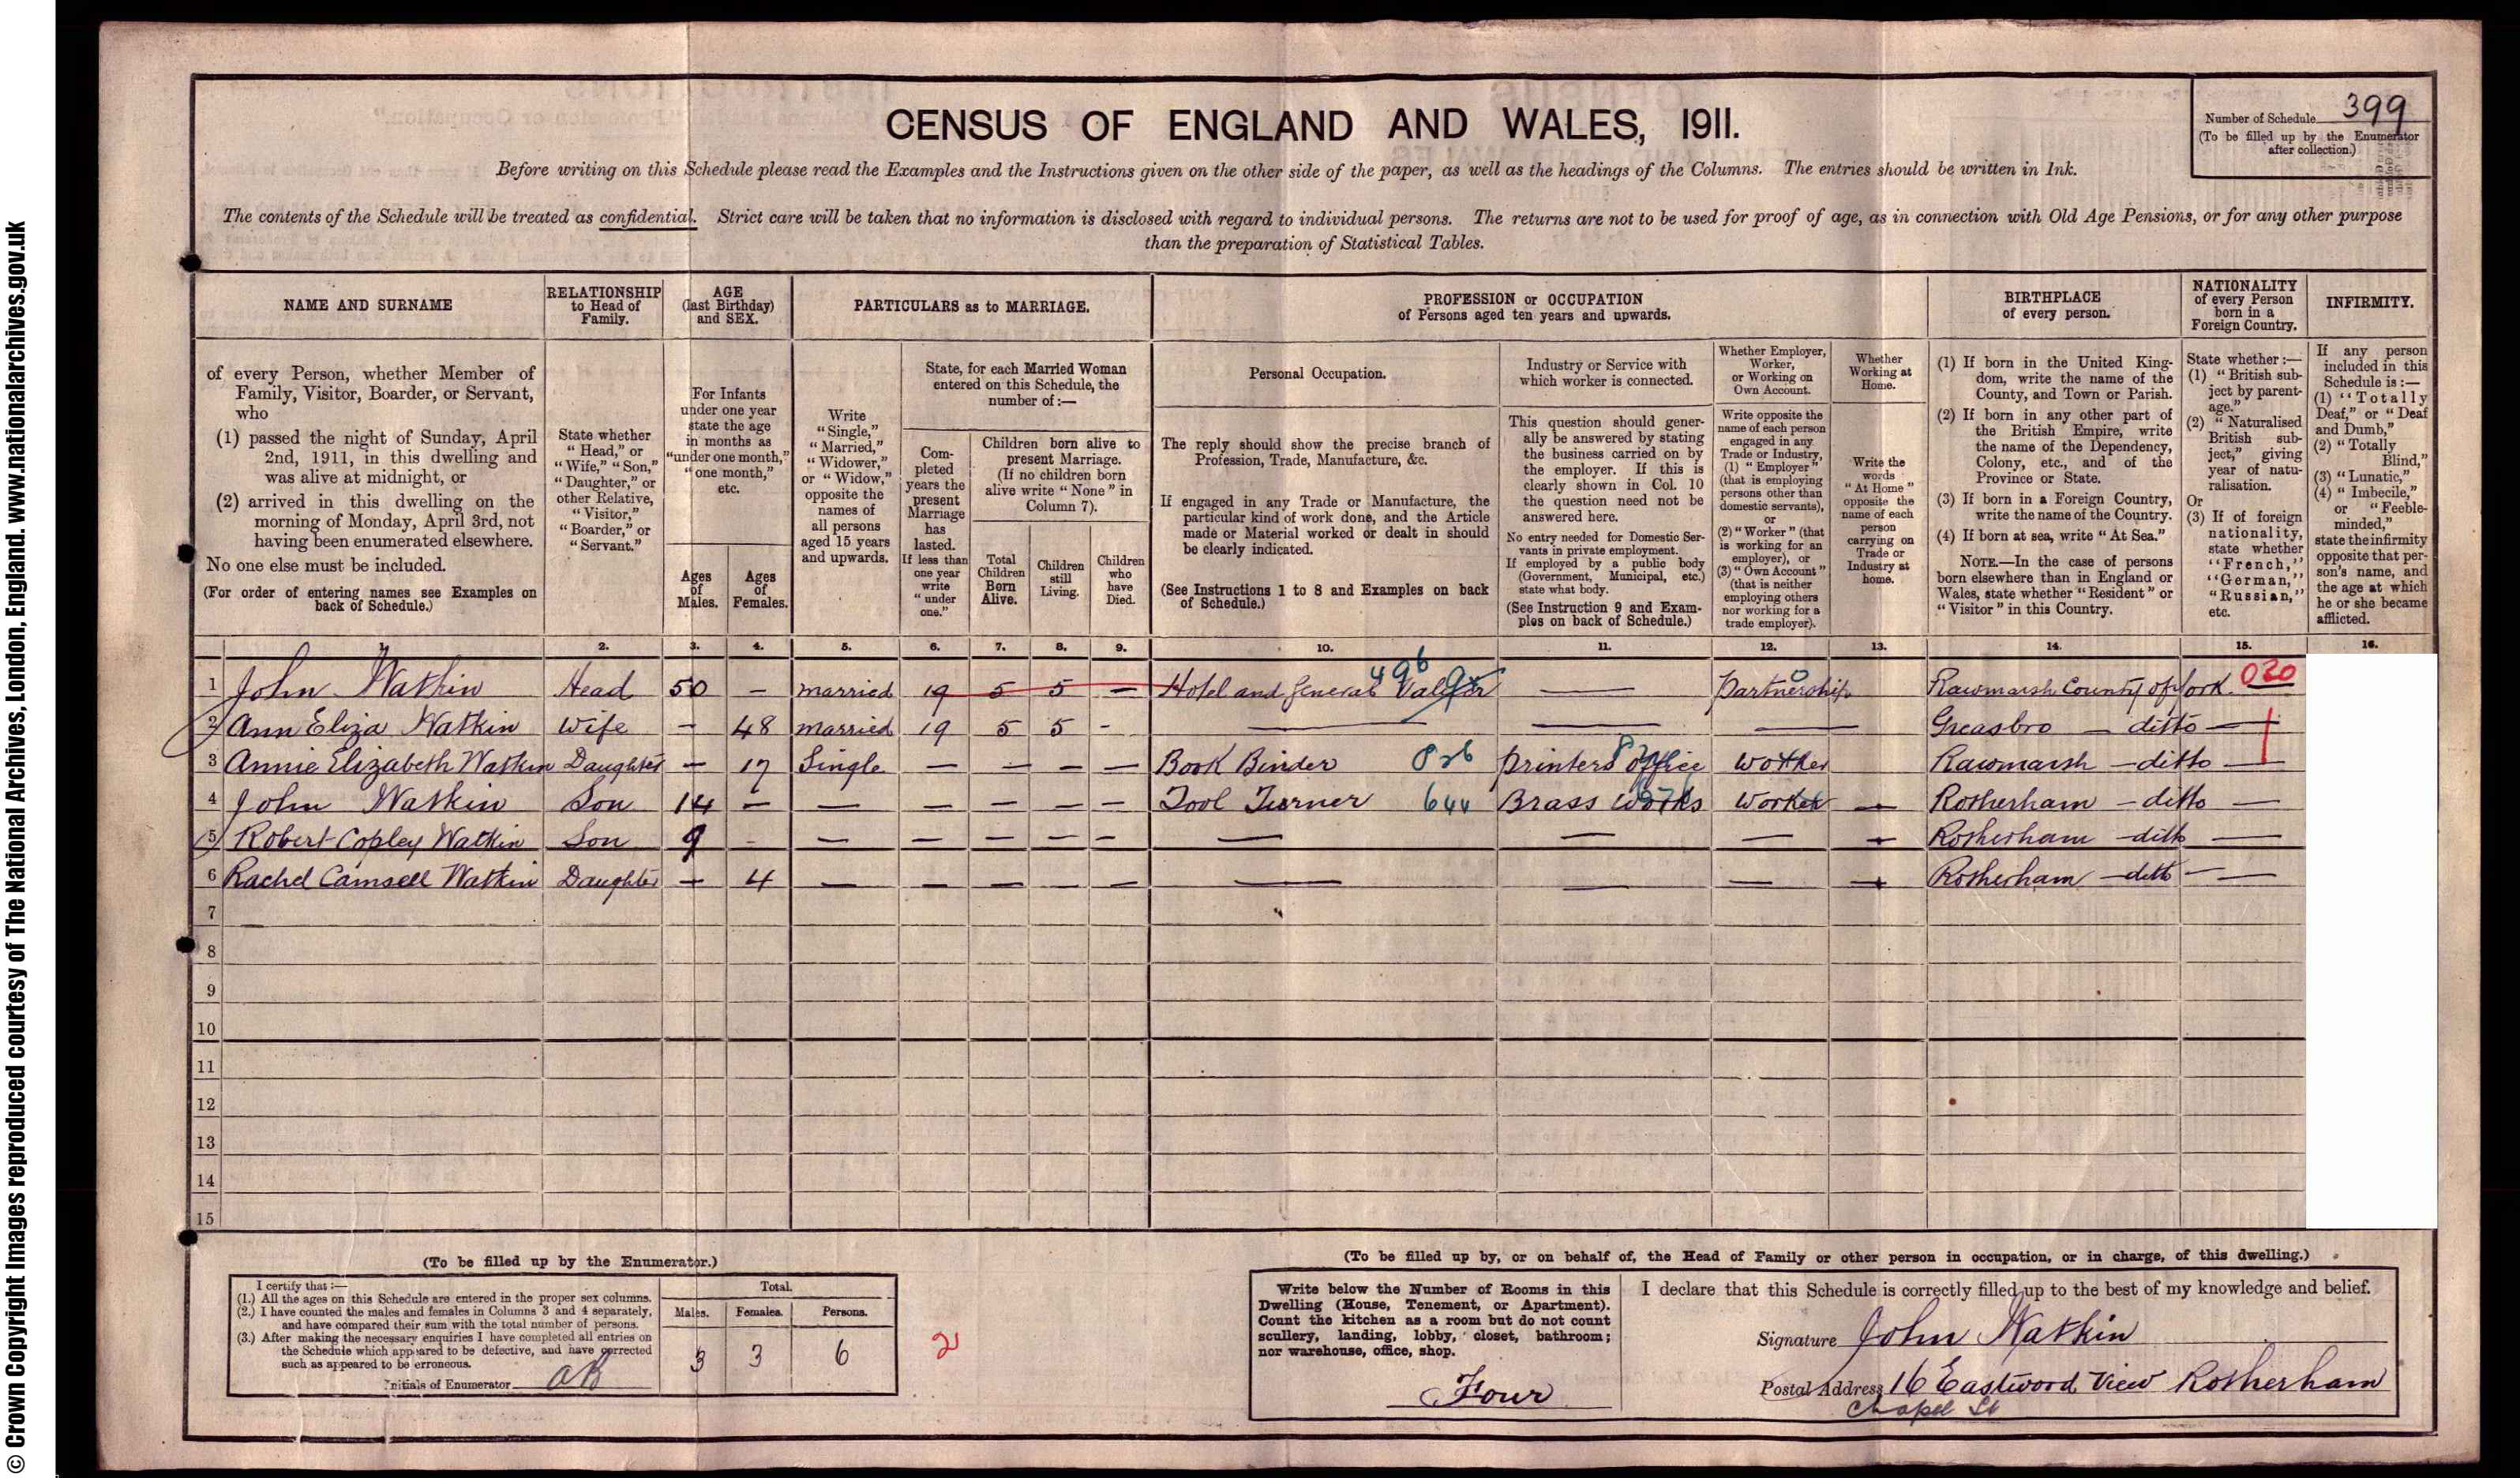 © Crown Copyright Images reproduced courtesy of The National Archives, London, England. www.nationalarchives.gov.uk
CENSUS OF ENGLAND AND WALES, 1911.
Number of Schedule 399
(To be filled up by the Enumerator
after collection.)
Before writing on this Schedule please read the Examples and the Instructions given on the other side of the paper, as well as the headings of the Columns. The entries should be written in Ink.
The contents of the Schedule will be treated as confidential. Strict care will be taken that no information is disclosed with regard to individual persons. The returns are not to be used for proof of age, as in connection with Old Age Pensions, or for any other purpose
than the preparation of Statistical Tables.
NAME AND SURNAME
of every Person, whether Member of
Family, Visitor, Boarder, or Servant,
who
(1) passed the night of Sunday, April
2nd, 1911, in this dwelling and
was alive at midnight, or
(2) arrived in this dwelling on the
morning of Monday, April 3rd, not
having been enumerated elsewhere.
No one else must be included.
(For order of entering names see Examples on
back of Schedule.)
RELATIONSHIP
to Head of
Family.
State whether
"Head," or
"Wife," "Son,"
"Daughter," or
other Relative,
"Visitor,"
"Boarder," or
"Servant."
AGE
(last Birthday)
and SEX.
For Infants
under one year
state the age
in months as
"under one month,"
"one month,"
etc.
Ages
of
Males.
Ages
of
Females.
PARTICULARS as to MARRIAGE.
Write
"Single,"
"Married,"
"Widower,"
or "Widow,"
opposite the
names of
all persons
aged 15 years
and upwards.
State, for each Married Woman
entered on this Schedule, the
number of:—
Com-
pleted
years the
present
Marriage
has
lasted.
If less than
one year
write
"under
one."
Children born alive to
present Marriage.
(If no children born
alive write "None" in
Column 7).
Total
Children
Born
Alive.
Children
still
Living.
Children
who
have
Died.
PROFESSION or OCCUPATION
of Persons aged ten years and upwards.
Personal Occupation.
The reply should show the precise branch of
Profession, Trade, Manufacture, &c.
If engaged in any Trade or Manufacture, the
particular kind of work done, and the Article
made or Material worked or dealt in should
be clearly indicated.
(See Instructions 1 to 8 and Examples on back
of Schedule.)
Industry or Service with
which worker is connected.
This question should gener-
ally be answered by stating
the business carried on by
the employer. If this is
clearly shown in Col. 10
the question need not be
answered here.
No entry needed for Domestic Ser-
vants in private employment.
If employed by a public body
(Government, Municipal, etc.)
state what body.
(See Instruction 9 and Exam-
ples on back of Schedule.)
Whether Employer,
Worker,
or Working on
Own Account.
Write opposite the
name of each person
engaged in any
Trade or Industry,
(1) "Employer"
(that is employing
persons other than
domestic servants),
or
(2) "Worker" (that
is working for an
employer), or
(3) "Own Account"
(that is neither
employing others
nor working for a
trade employer).
Whether
Working at
Home.
Write the
words
"At Home"
opposite the
name of each
person
carrying on
Trade or
Industry at
home.
BIRTHPLACE
of every person.
(1) If born in the United King-
dom, write the name of the
County, and Town or Parish.
(2) If born in any other part of
the British Empire, write
the name of the Dependency,
Colony, etc., and of the
Province or State.
(3) If born in a Foreign Country,
write the name of the Country.
(4) If born at sea, write "At Sea."
NOTE.—In the case of persons
born elsewhere than in England or
Wales, state whether "Resident" or
"Visitor" in this Country.
NATIONALITY
of every Person
born in a
Foreign Country.
State whether:—
(1) "British sub-
ject by parent-
age."
(2) "Naturalised
British sub-
ject," giving
year of natu-
ralisation.
Or
(3) If of foreign
nationality,
state whether
"French,"
"German,"
"Russian,"
etc.
INFIRMITY.
If any person
included in this
Schedule is:—
(1) "Totally
Deaf," or "Deaf
and Dumb,"
(2) "Totally
Blind,"
(3) "Lunatic,"
(4) "Imbecile,"
or "Feeble-
minded,"
state the infirmity
opposite that per-
son's name, and
the age at which
he or she became
afflicted.
1. 2. 3. 4. 5. 6. 7. 8. 9. 10. 11. 12. 13. 14. 15. 16.
1 John Watkin Head 50 – married 19 5 5 – Hotel and General Valuer 496 — Partnership 0 Rawmarsh County of York 020
2 Ann Eliza Watkin Wife – 48 married 19 5 5 - — — — Greasbro – ditto —
3 Annie Elizabeth Watkin Daughter – 17 Single – – – – Book Binder 826 printers office worker Rawmarsh – ditto —
4 John Watkin Son 14 – – – – – – Tool Turner 644 Brass Works Worker – Rotherham – ditto —
5 Robert Copley Watkin Son 9 - – – – – – — — — – Rotherham – ditto —
6 Rachel Camsell Watkin Daughter – 4 — – – – – — — — – Rotherham – ditto – —
7
8
9
10
11
12
13
14
15
(To be filled up by the Enumerator.)
I certify that:—
(1.) All the ages on this Schedule are entered in the proper sex columns.
(2.) I have counted the males and females in Columns 3 and 4 separately,
and have compared their sum with the total number of persons.
(3.) After making the necessary enquiries I have completed all entries on
the Schedule which appeared to be defective, and have corrected
such as appeared to be erroneous.
Initials of Enumerator
Total.
Males. Females. Persons.
3 3 6
2
(To be filled up by, or on behalf of, the Head of Family or other person in occupation, or in charge, of this dwelling.)
Write below the Number of Rooms in this
Dwelling (House, Tenement, or Apartment).
Count the kitchen as a room but do not count
scullery, landing, lobby, closet, bathroom;
nor warehouse, office, shop.
Four
I declare that this Schedule is correctly filled up to the best of my knowledge and belief.
Signature John Watkin
Postal Address 16 Eastwood View Rotherham
Chapel St